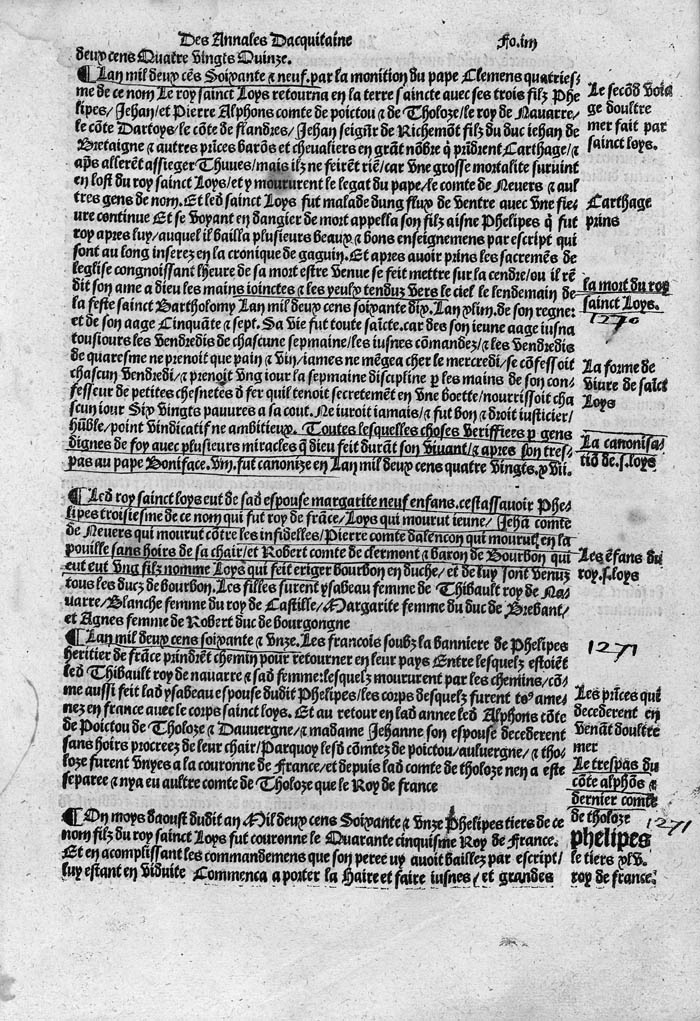 Des Annales Dacquitaine
Fo.iiii
deux cens Quatre vingts Quinze.
¶ Lan mil deux cēs Soixante & neuf.par la monition du pape Clemens quatries-
me de ce nom Le roy sainct Loys retourna en la terre saincte avec ses trois filz Phe
lipes/ Jehan/ et Pierre Alphons comte de poictou & de Tholoze/ le roy de Nauarre/
le cōte Dartoys/ le cōte de flandres/ Jehan seignr̄ de Richemōt filz du duc iehan de
Bretaigne & autres prīces barōs et chevaliers en grāt nōbre q̄ prīdrent Carthage/ &
ap̄s allerēt assieger Thuues/ mais ilz ne feirēt riē/ car vne grosse mortalite suruint
en lost du roy sainct Loys/ et y moururent le legat du pape/ le comte de Neuers & aul
tres gens de nom. Et led sainct Loys fut malade dung flux de ventre avec vne fie-
ure continue Et se voyant en dangier de mort appella son filz aisne Phelipes q̄ fut
roy apres luy/ auquel il bailla plusieurs beaux & bons enseignemens par escript qui
sont au long inserez en la cronique de gaguin. Et apres auoir prins les sacremēs de
leglise congnoissant lheure de sa mort estre venue se feit mettre sur la cendre/ ou il rē
dit son ame a dieu les mains ioinctes & les yeulx tenduz vers le ciel le lendemain de
la feste sainct Bartholomy Lan mil deux cens soixante dix. Lan xliiii.de son regne:
et de son aage Cinquāte & sept. Sa vie fut toute saīcte.car des son ieune aage iusna
tousiours les vendredis de chascune sepmaine/ les iusnes cōmandez/ & les vendredis
de quaresme ne prenoit que pain & vin/ iames ne mēgea cher le mercredi/ se cōfessoit
chascun vendredi/ & prenoit vng iour la sepmaine discipline p les mains de son con-
fesseur de petites chesnetes d fer quil tenoit secretemēt en vne boette/ nourrissoit cha
scun iour Six vingts pauures a sa court. Ne iuroit iamais/ & fut bon & droit iusticier/
hūble/ point vindicatif ne ambitieux. Toutes lesquelles choses veriffiees p gens
dignes de foy avec plusieurs miracles q̄ dieu feit durāt son vivant/ & apres son tres-
pas au pape Boniface.viii.fut canonize en Lan mil deux cens quatre vingts.xvii.
¶ Led roy sainct loys eut de sad espouse margarite neuf enfans.cestassauoir Phe-
lipes troisiesme de ce nom qui fut roy de frāce/ Loys qui mourut ieune/ Jehā comte
de Neuers qui mourut cōtre les infidelles/ Pierre comte dalencon qui mourut en la
pouille sans hoirs de sa chair/ et Robert comte de clermont & baron de Bourbon qui
eut eut vng filz nomme Loys qui feit eriger bourbon en duche/ et de luy sont venuz
tous les ducz de bourbon. Les filles furent ysabeau femme de Thibault roy de Na-
uarre/ Blanche femme du roy de Castille/ Margarite femme du duc de Brebant/
et Agnes femme de Robert duc de bourgongne
¶ Lan mil deux cens soixante & vnze. Les francois soubz la banniere de Phelipes
heritier de frāce prindrēt chemin pour retourner en leur pays Entre lesquelz estoiēt
led Thibault roy de nauarre & sad femme:lesquelz moururent par les chemins/ cō-
me aussi feit lad ysabeau espouse dudit Phelipes/ les corps desquelz furent tos ame-
nez en france avec le corps sainct loys. Et au retour en lad annee led Alphons cōte
de Poictou de Tholoze & Dauvergne/ & madame Jehanne son espouse decederent
sans hoirs procreez de leur chair/ Parquoy lesd cōmtez de poictou/ auluergne/ & tho-
loze furent vnyes a la couronne de France/ et depuis lad comte de tholoze nen a este
separee & nya eu aultre comte de Tholoze que le Roy de france
¶ On moys daoust dudit an Mil deux cens Soixante & vnze Phelipes tiers de ce
nom filz du roy sainct Loys fut couronne le Quarante cinquisme Roy de France.
Et en acomplissant les commandemens que son pere eu y auoit baillez par escript/
luy estant en viduite Commenca a porter la Haire et faire iusnes/ et grandes
Le secōd voia
ge doultre
mer fait par
sainct loys.
Carthage
prins
la mort du roy
sainct Loys.
1270
La forme de
viure de saīct
Loys
La canonisa-
tiō de.s.loys
Les ēfans du
roy.s.loys
1271
Les prīces qui
decederent en
venāt doultre
mer
Le trespas du
cōte alphōs &
dernier comte
de tholoze
1271
phelipes
le tiers xlv.
roy de france.